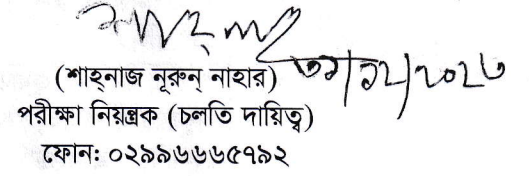 (শাহ্‌নাজ নূরুন্ নাহার)
পরীক্ষা নিয়ন্ত্রক (চলতি দায়িত্ব)
ফোন: ০২৯৯৬৬৬৫৭৯২